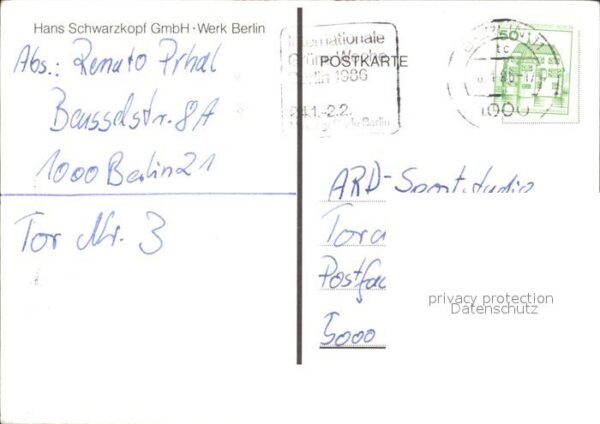 Hans Schwarzkopf GmbH · Werk Berlin
Abs.: Renato Prhal
Beusselstr. 8A
1000 Berlin 21
Tor Nr. 3
Internationale
Grüne Woche
Berlin 1986
24.1.-2.2.
Berlin
POSTKARTE
50
1000
ARD-Sportstudio
Tora
Postfac
5000
privacy protection
Datenschutz